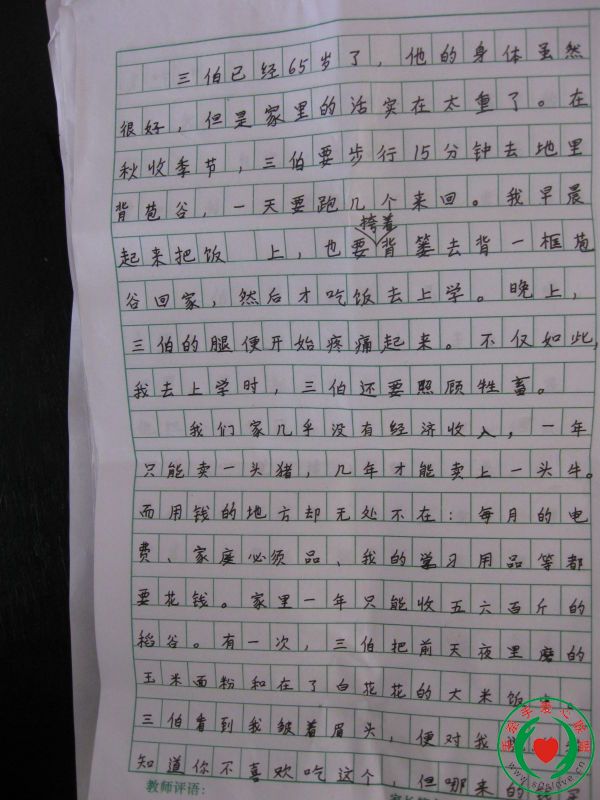 三伯已经65岁了，他的身体虽然
很好，但是家里的活实在太重了。在
秋收季节，三伯要步行15分钟去地里
背苞谷，一天要跑几个来回。我早晨
挎着
起来把饭 上，也要背篓去背一框苞
谷回家，然后才吃饭去上学。晚上，
三伯的腿便开始疼痛起来。不仅如此，
我去上学时，三伯还要照顾牲畜。
我们家几乎没有经济收入，一年
只能卖一头猪，几年才能卖上一头牛。
而用钱的地方却无处不在：每月的电
费、家庭必须品，我的学习用品等都
要花钱。家里一年只能收五六百斤的
稻谷。有一次，三伯把前天夜里磨的
玉米面粉和在了白花花的大米饭
三伯看到我皱着眉头，便对我
知道你不喜欢吃这个，但哪来的钱
教师评语：
www.sgslove.cn